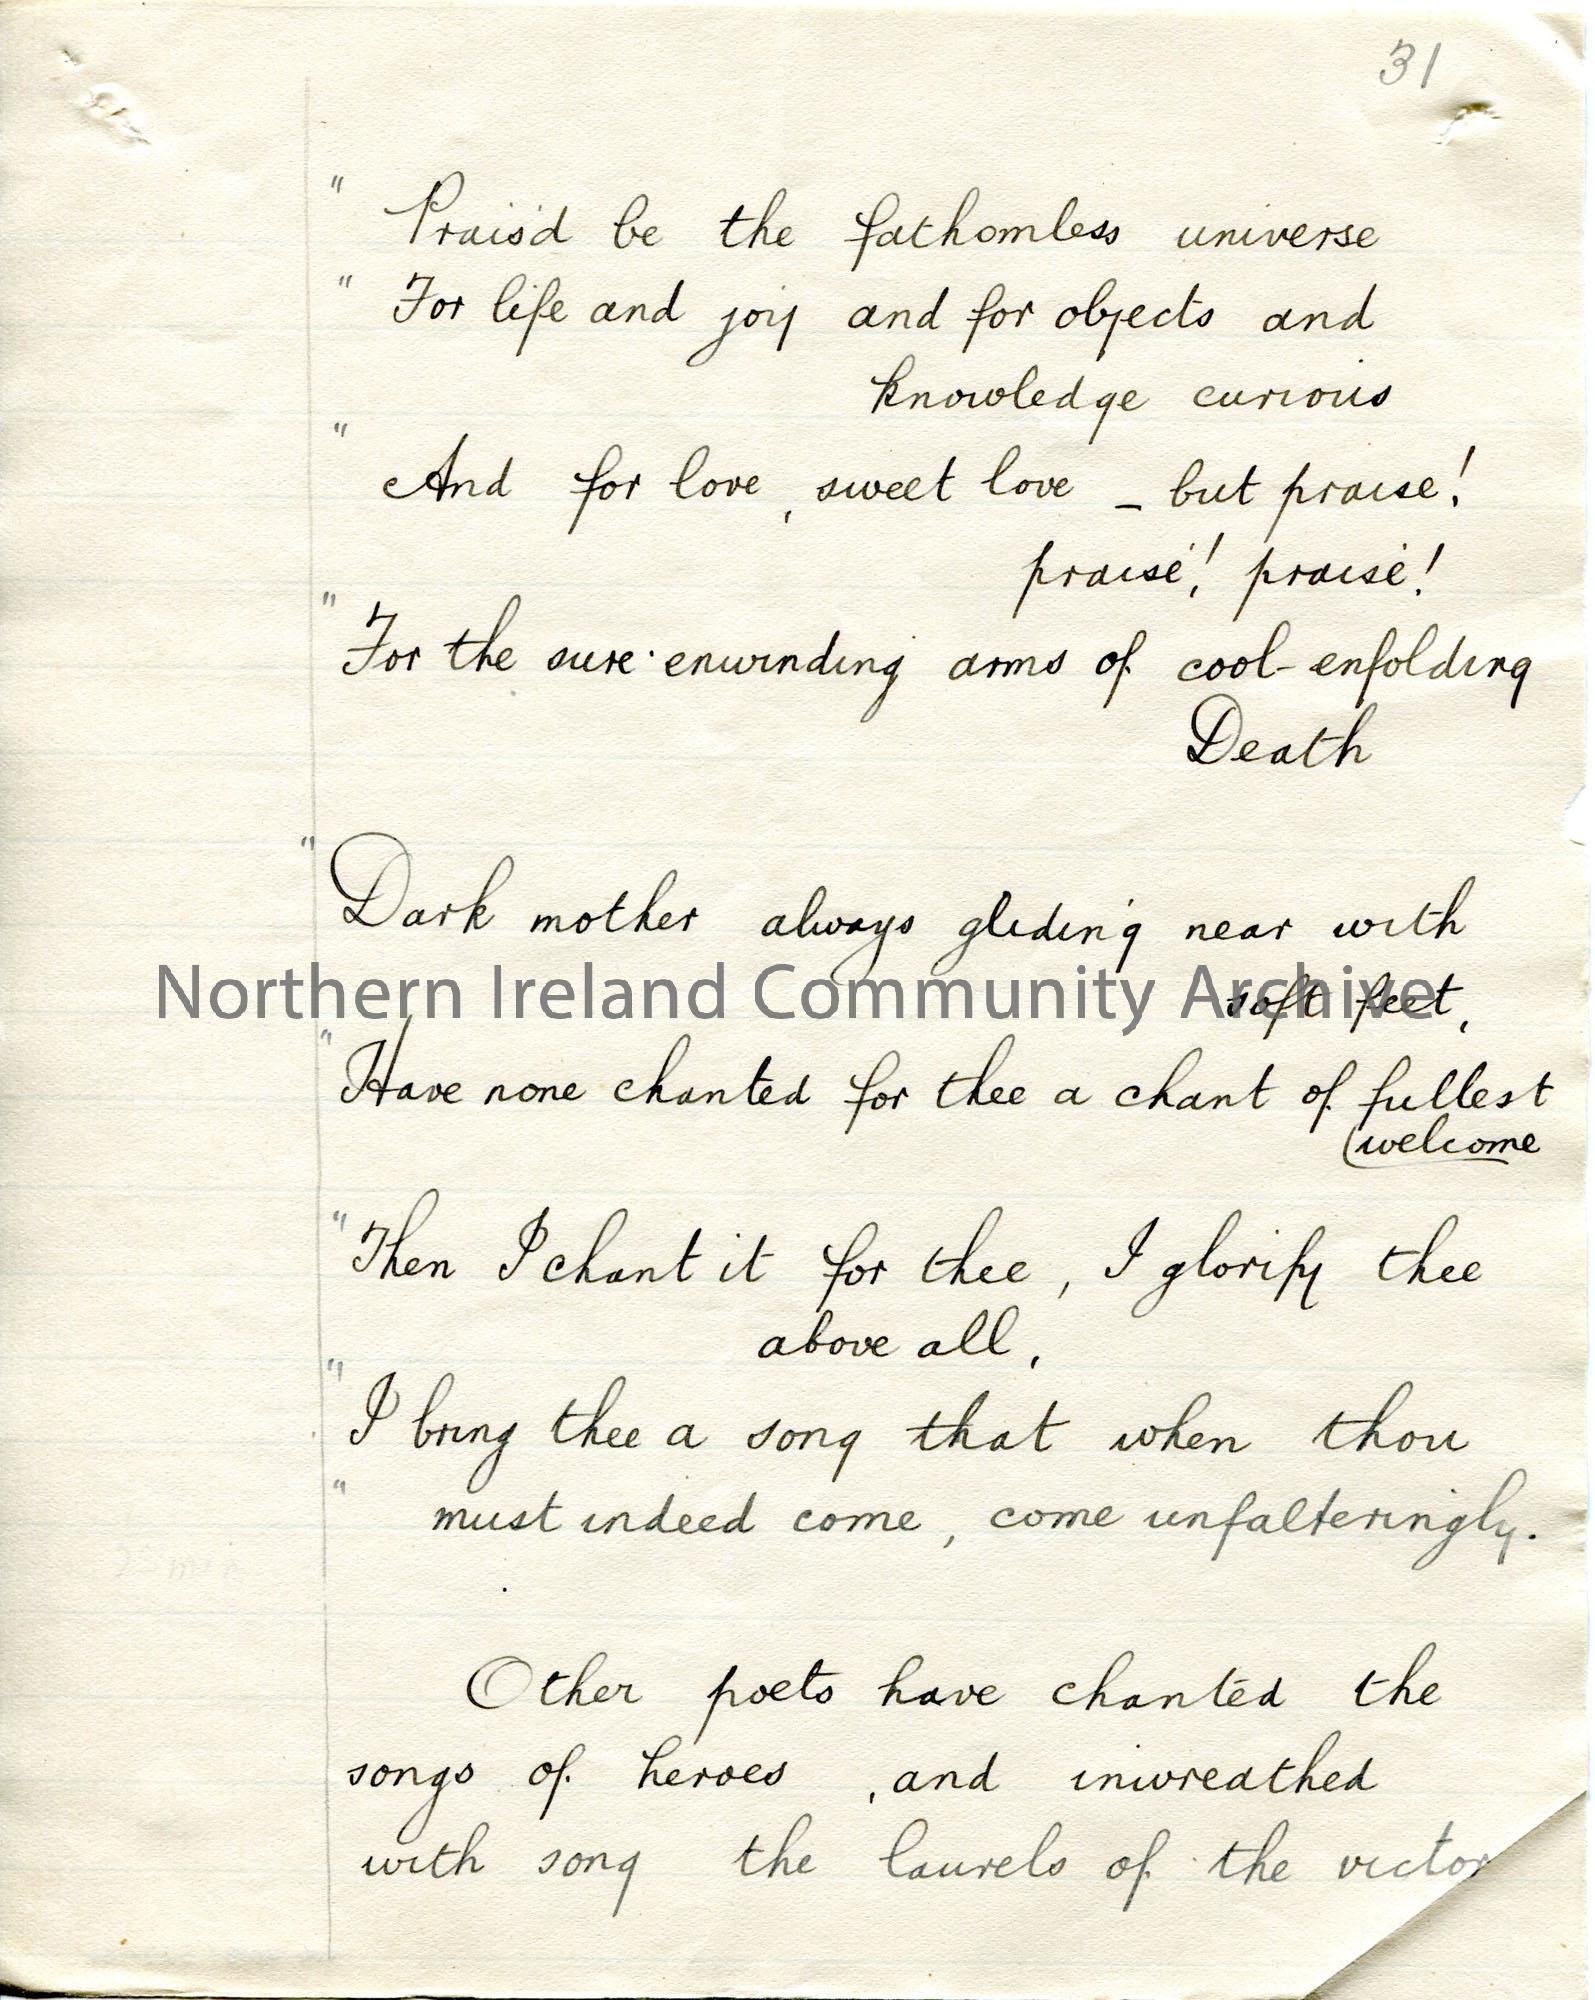 31
" Prais'd be the fathomless universe
" For life and joy and for objects and
knowledge curious
" And for love, sweet love – but praise!
praise! praise!
" For the sure-enwinding arms of cool-enfolding
Death
" Dark mother always gliding near with
soft feet,
Northern Ireland Community Archive
" Have none chanted for thee a chant of fullest
(welcome
" Then I chant it for thee, I glorify thee
above all,
" I bring thee a song that when thou
" must indeed come, come unfalteringly.
Other poets have chanted the
songs of heroes, and inwreathed
with song the laurels of the victor